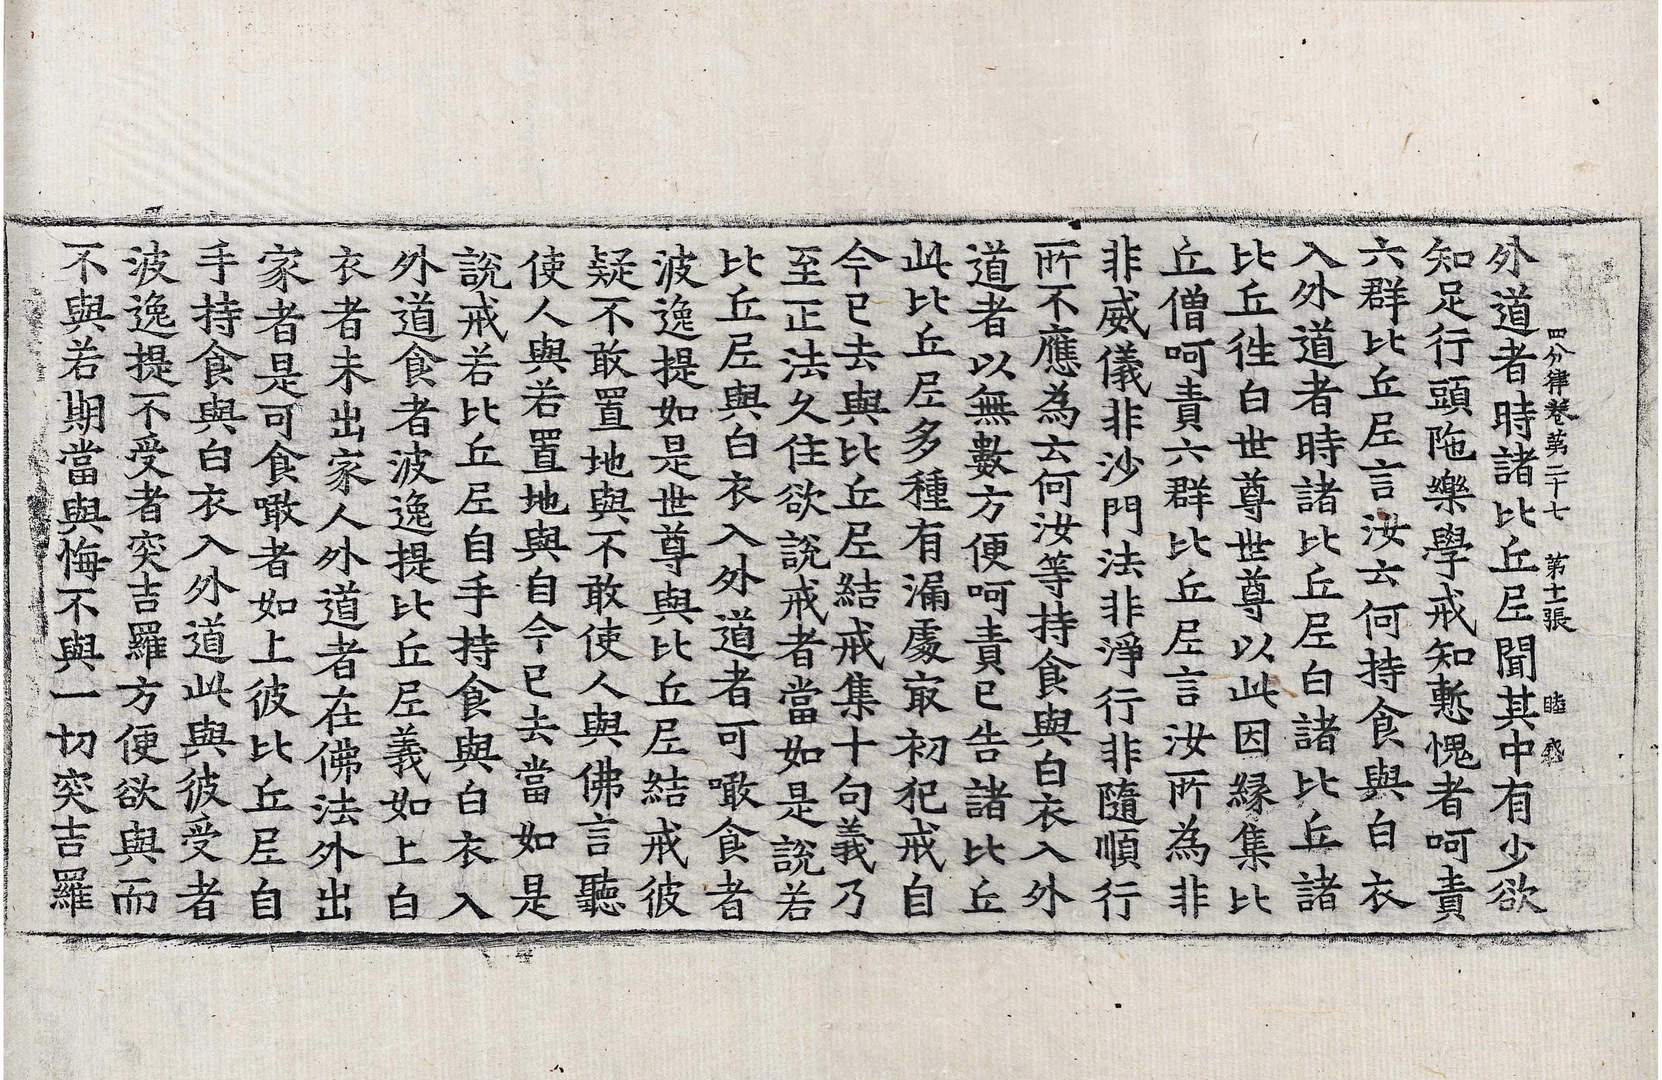 四分律卷第二十七 第十一張 睦
外道者時諸比丘尼聞其中有少欲
知足行頭陁樂學戒知慙愧者呵責
六群比丘尼言汝云何持食與白衣
入外道者時諸比丘尼白諸比丘諸
比丘徃白世尊世尊以此因緣集比
丘僧呵責六群比丘尼言汝所為非
非威儀非沙門法非淨行非隨順行
所不應為云何汝等持食與白衣入外
道者以無數方便呵責已告諸比丘
此比丘尼多種有漏處㝡初犯戒自
今已去與比丘尼結戒集十句義乃
至正法久住欲說戒者當如是說若
比丘尼與白衣入外道者可噉食者
波逸提如是世尊與比丘尼結戒彼
疑不敢置地與不敢使人與佛言聽
使人與若置地與自今已去當如是
說戒若比丘尼自手持食與白衣入
外道食者波逸提比丘尼義如上白
衣者未出家人外道者在佛法外出
家者是可食噉者如上彼比丘尼自
手持食與白衣入外道此與彼受者
波逸提不受者突吉羅方便欲與而
不與若期當與悔不與一切突吉羅